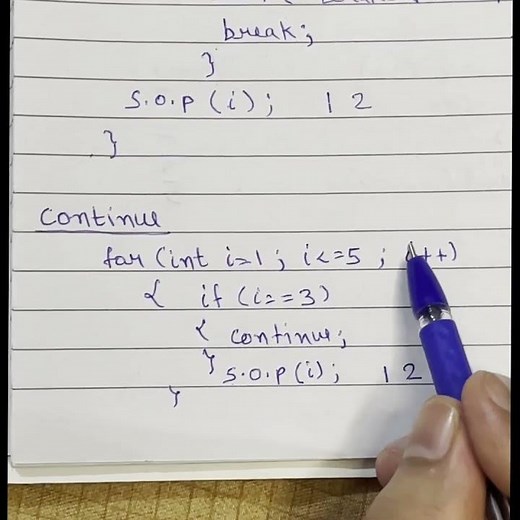 break;
}
S.O.P (i); 1 2
}
Continue
for (int i=1; i<=5; i++)
{ if (i==3)
{ continue;
} S.O.P (i); 1 2
}